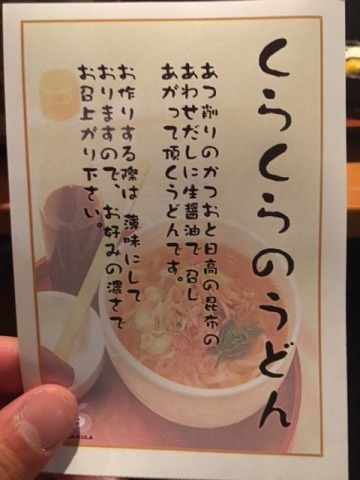 くらくらのうどん
あつ削りのかつおと日高の昆布の
あわせだしに生醤油で召し
あがって頂くうどんです。
お作りする際は 薄味にして
おりますので、お好みの濃さで
お召上がり下さい。